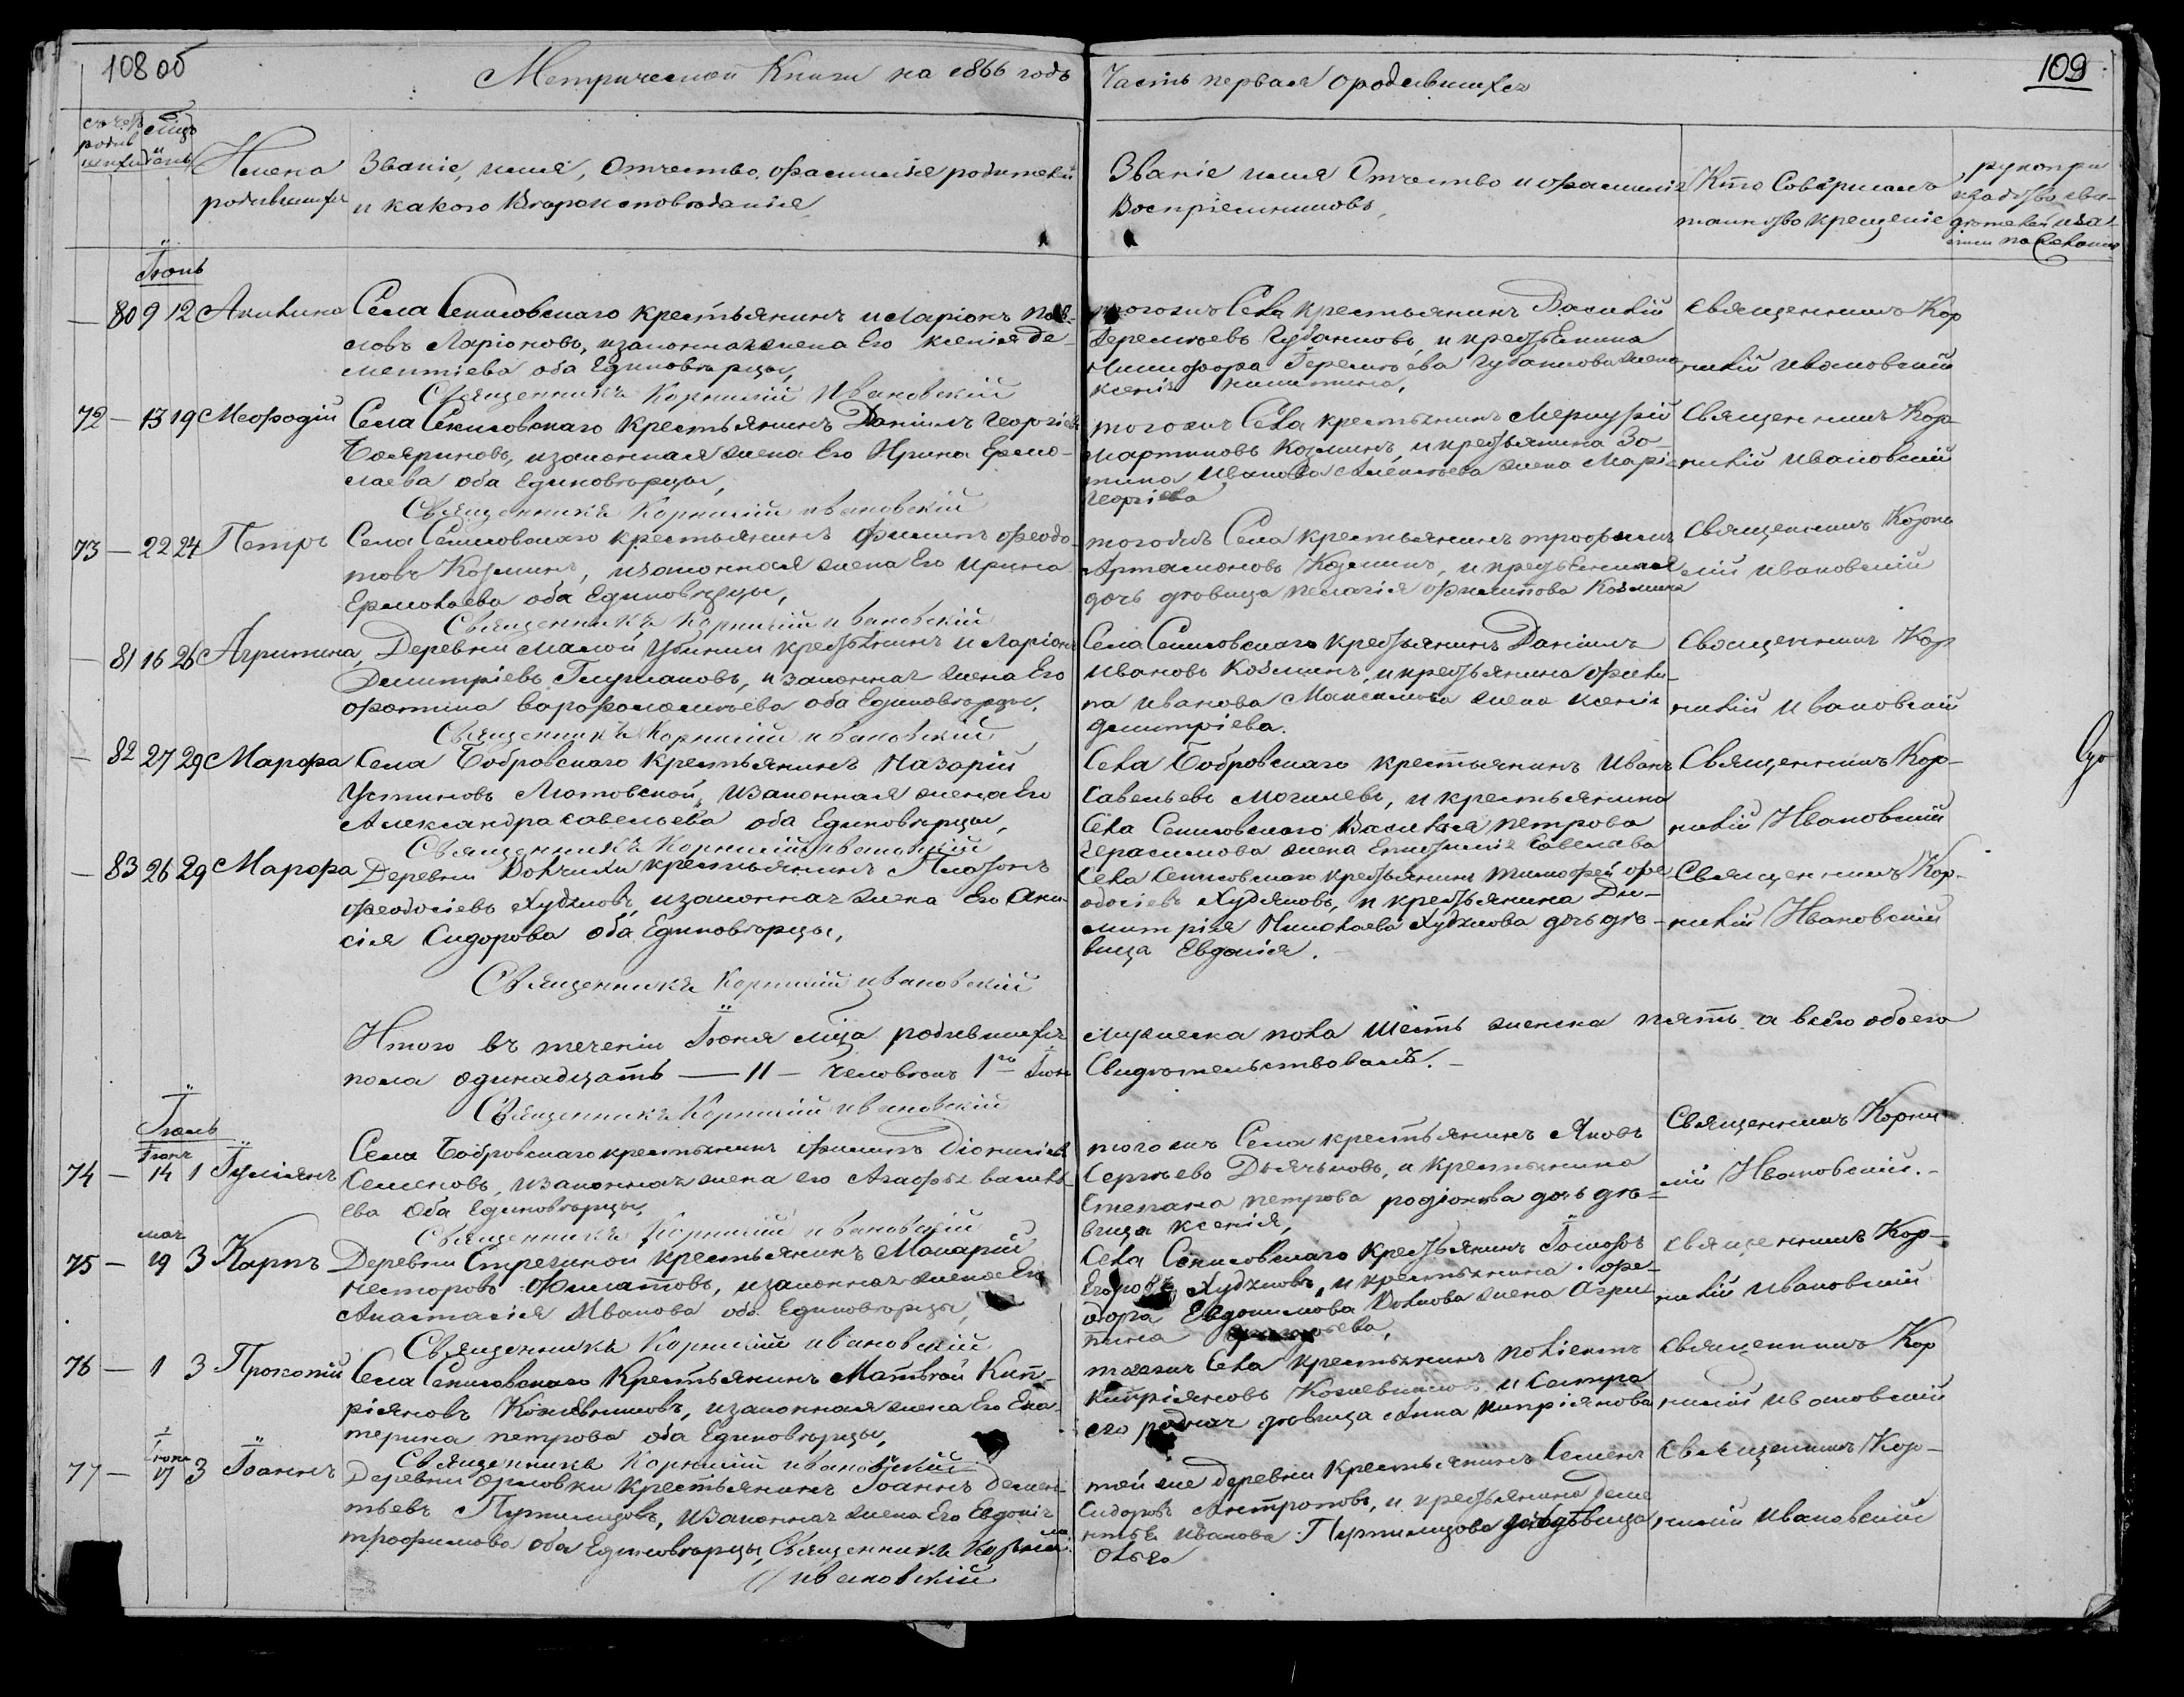 108 об
Метрической Книги на 1866 годъ
Часть первая о родившихся
109
Имена родившихся
Званіе, имя, Отчество, фамилія родителей
и какого Вѣроисповѣданія
Званіе имя Отчество и фамилія
Воспріемниковъ,
Кто Совершалъ
таинство крещеніе
рукопри
Іюнь
80 9 12 Акилина Села Секисовскаго крестьянинъ Иларіонъ Пав-
ловъ Ларіоновъ, изаконная жена Его ксенія Де-
ментіева оба Единовѣрцы,
Священникъ Корнилій Ивановскій
тогожъ Села крестьянинъ Василій
Теремтьевъ Губановъ, и крестьянина
Никифора Губанова жена
ксенія никитина,
священникъ Кор
нилій ивановскій
72 — 13 19 Меѳодій Села Секисовскаго крестьянинъ Даніилъ георгіевъ
Бояриновъ, изаконная жена Его Ирина Ермо-
лаева оба Единовѣрцы,
Священникъ Корнилій ивановскій
тогожъ Села крестьянинъ Меркурій
мартиновъ Козминъ, и крестьянина Зо-
тика Иванова жена Марія
георгіева
Священникъ Кор-
нилій ивановскій
73 — 22 24 Петръ Села Секисовскаго крестьянинъ филипъ феодо-
товъ Козминъ, изаконная жена Его ирина
Ермолаева оба Единовѣрцы,
Священникъ Корнилій ивановскій
тогожъ Села крестьянинъ трофимъ
Артамоновъ Козминъ, и крестьянина
дочь дѣвица пелагія филипова Козмина
Священникъ Корни
лій ивановскій
81 16 26 Агрипина, Деревни малой Убинки крестьянинъ иларіонъ
Димитріевъ Глушаковъ, изаконная жена Его
фотина варфоломеева оба Единовѣрцы,
Священникъ Корнилій ивановскій
Села Секисовскаго крестьянинъ Даніилъ
ивановъ Козминъ, и крестьянина фили-
па иванова Максимова жена ксенія
димитріева.
Священникъ Кор
нилій ивановскій
82 27 29 Марфа Села Бобровскаго крестьянинъ Назарій
Устиновъ Лотовской, изаконная жена Его
Александра савельева оба Единовѣрцы,
Священникъ Корнилій ивановскій
Села Бобровскаго крестьянинъ Иванъ
Савельевъ могилевъ, и крестьянина
Села Секисовскаго Василія петрова
герасимова жена Савельева
Священникъ Кор-
нилій Ивановскій
83 26 29 Марфа Деревни Волчихи крестьянинъ Платонъ
феодосіевъ Худяковъ, изаконная жена Его Ани-
сія Сидорова оба Единовѣрцы,
Священникъ Корнилій ивановскій
Села Секисовскаго крестьянинъ тимофей фе-
одосіевъ Худяковъ, и крестьянина Ди-
митрія Николаева Худякова дочь дѣ-
вица Евдокія.
Священникъ Кор-
нилій Ивановскій
Итого въ теченіи Іюня мѣца родившихся
мужеска пола шесть женска пять, а всего обоего
пола одинадцать — 11 — человѣкъ 1го Іюля
Свидѣтельствовалъ. —
Священникъ Корнилій ивановскій
Іюль
Іюня
74 — 14 1 Іуліянъ Села Бобровскаго крестьянинъ филипъ діонисіевъ
Семеновъ, изаконная жена его Агафья василь-
ева Оба Единовѣрцы,
Священникъ Корнилій ивановскій
тогожъ Села крестьянинъ Яковъ
Сергѣевъ Дьячковъ, и крестьянина
Степана петрова родіонова дочь дѣ-
вица ксенія,
Священникъ Корни
лій Ивановскій. —
75 — 29 3 Карпъ Деревни Стрежной крестьянинъ Макарій
несторовъ Филатовъ, изаконная жена Его
Анастасія Иванова оба Единовѣрцы,
Священникъ Корнилій ивановскій
Села Секисовскаго крестьянинъ Іосифъ
Егоровъ Худяковъ, и крестьянина фе-
дора Евдокимова Волкова жена Агри-
пина
священникъ Кор-
нилій ивановскій
76 — 1 3 Прокопій Села Секисовскаго Крестьянинъ Матвѣй Кип-
ріяновъ Кожевниковъ, изаконная жена Его Ека-
терина петрова оба Единовѣрцы,
Священникъ Корнилій ивановскій
тогожъ Села крестьянинъ поліектъ
кипріяновъ Кожевниковъ и Сестра
его родная дѣвица Анна кипріянова
священникъ Кор
нилій ивановскій
Іюня
77 — 17 3 Іоаннъ Деревни орловки крестьянинъ Іоаннъ демен-
тьевъ Путимцовъ, изаконная жена Его Евдокія
трофимова оба Единовѣрцы, Священникъ Корнилій
ивановскій
той же деревни крестьянинъ Семенъ
Сидоровъ Антроповъ, и крестьянина деме
нтья иванова Путимцова дочь дѣвица
Ольга
священникъ Кор-
нилій ивановскій